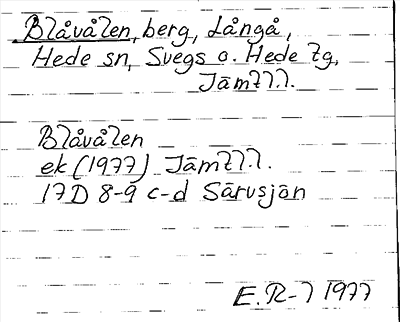 Blåvålen, berg, Långå,
Hede sn, Svegs o. Hede tg,
Jämtl.l.
Blåvålen
ek (1977) Jämtl.l.
17D 8-9 c-d Särvsjön
E.R-l 1977